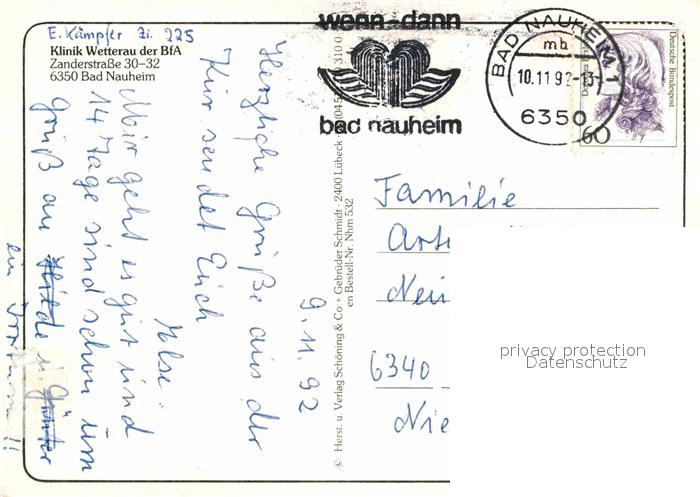 E. Kämpfer Zi. 225
Klinik Wetterau der BfA
Zanderstraße 30-32
6350 Bad Nauheim
9.11.92
Herzliche Grüße aus der
Kur sendet Euch
Else.
Mir geht es gut und
14 Tage sind schon um
Gruß an Hilde u. Günter
ein Irrtum!!
© Herst. u. Verlag Schöning & Co + Gebrüder Schmidt · 2400 Lübeck
en Bestell-Nr. Nhm 532
wenn-dann
bad nauheim
BAD NAUHEIM 1
mb
10.11.92-13
6350
Deutsche Bundespost
60
Familie
6340
privacy protection
Datenschutz